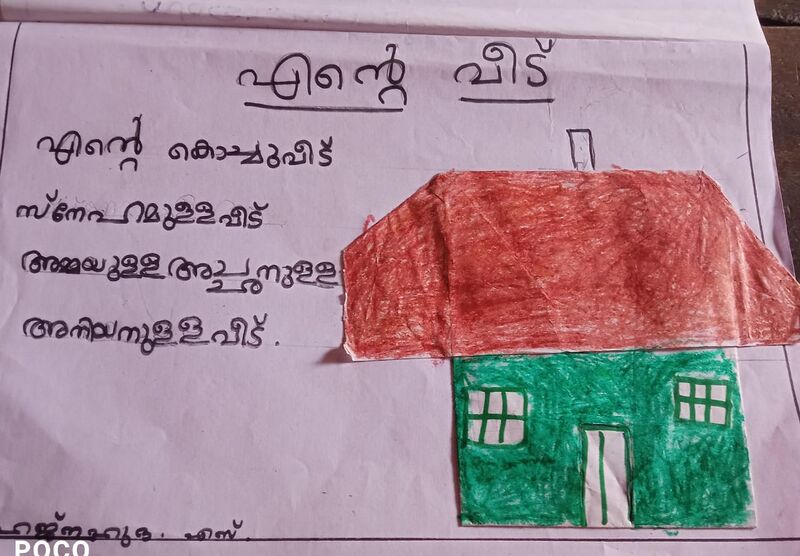 എന്റെ വീട്
എന്റെ കൊച്ചുവീട്
സ്നേഹമുള്ള വീട്
അമ്മയുള്ള അച്ഛനുള്ള
അനിയനുള്ള വീട്.
എസ്.
POCO